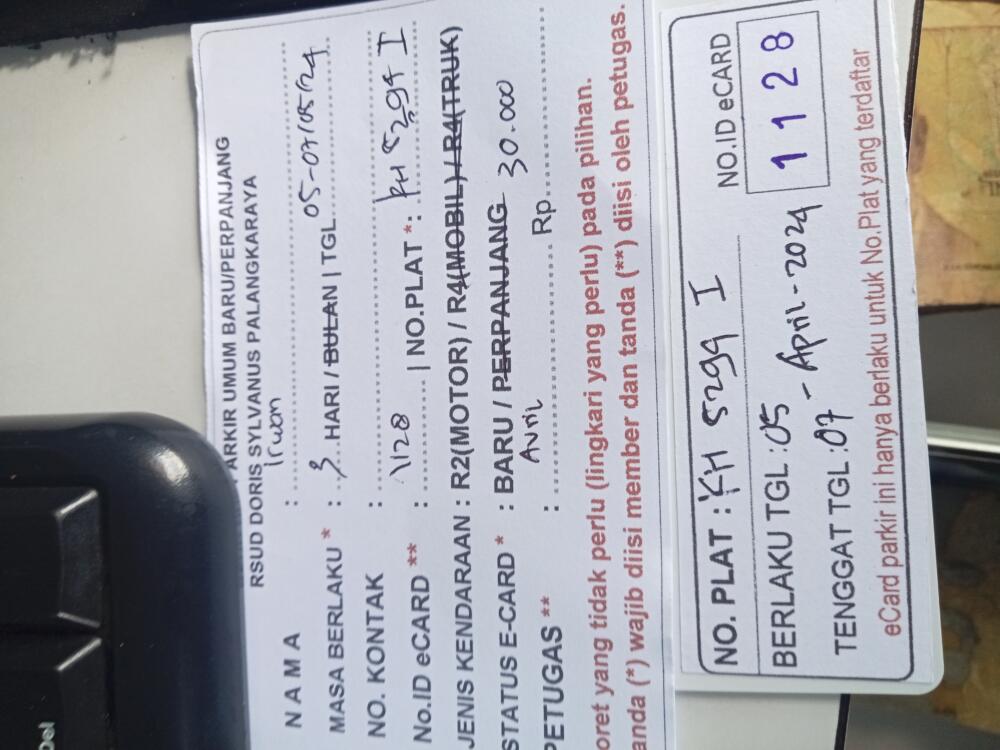 ARKIR UMUM BARU/PERPANJANG
RSUD DORIS SYLVANUS PALANGKARAYA
N A M A : Irwan
MASA BERLAKU * : 3 HARI / BULAN | TGL 05-07/05/24
NO. KONTAK :
No.ID eCARD ** : 1128 | NO.PLAT *: KH 5294 I
JENIS KENDARAAN : R2(MOTOR) / R4(MOBIL) / R4(TRUK)
STATUS E-CARD * : BARU / PERPANJANG 30.000
PETUGAS ** : Rp.
oret yang tidak perlu (lingkari yang perlu) pada pilihan.
anda (*) wajib diisi member dan tanda (**) diisi oleh petugas.
NO. PLAT : KH 5294 I
NO.ID eCARD
BERLAKU TGL :05
1128
TENGGAT TGL :07 - April - 2024
eCard parkir ini hanya berlaku untuk No.Plat yang terdaftar
Del